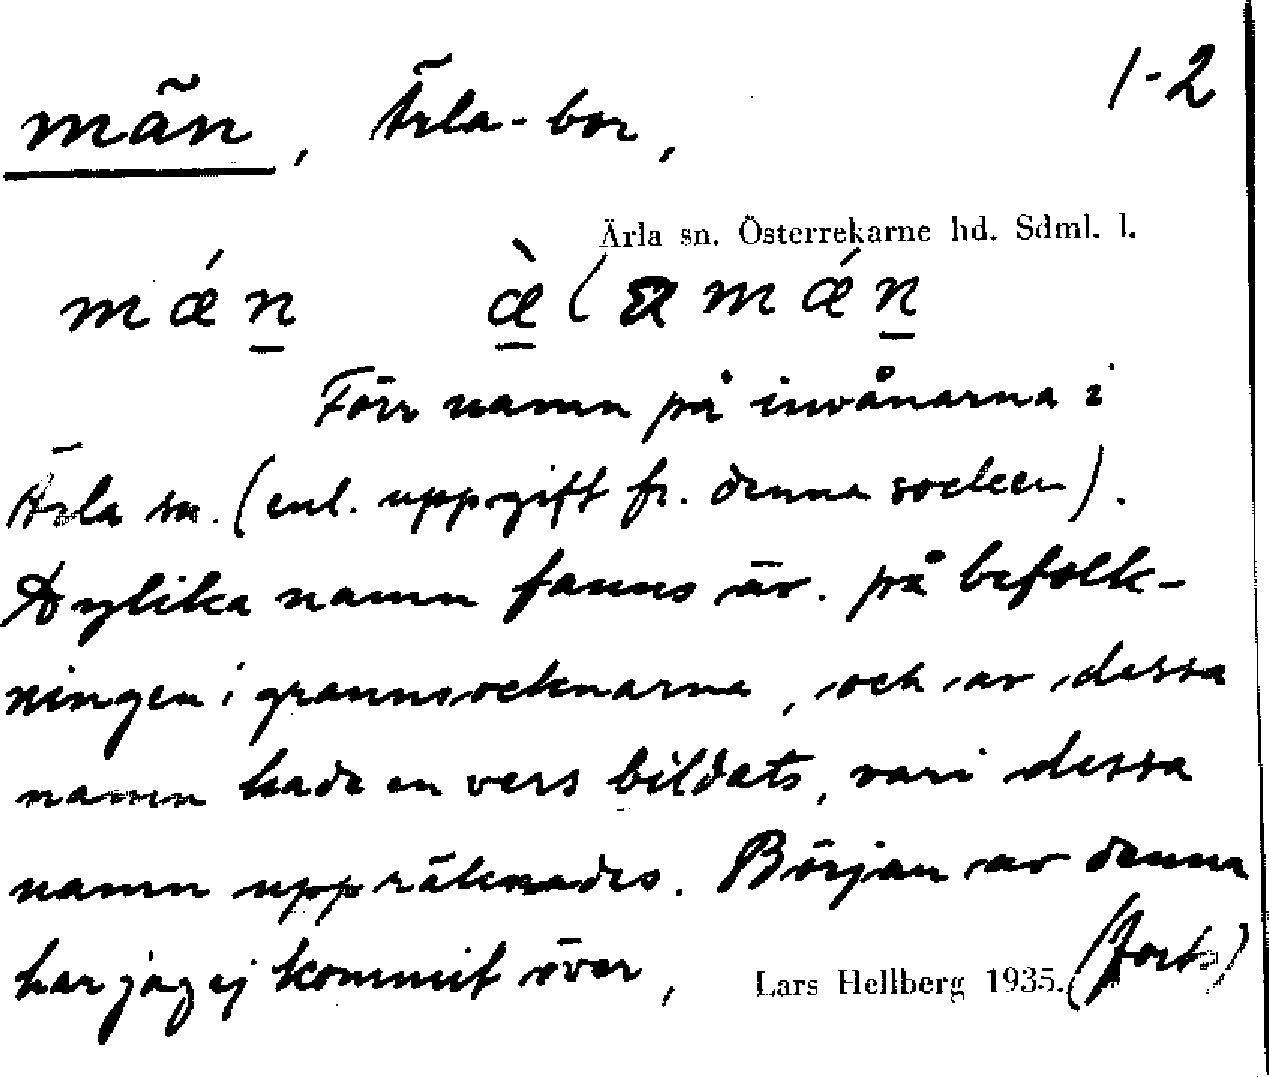 män, Ärla-bor, 1-2
Ärla sn. Österrekarne hd. Sdml. l.
mǽn
Förr namn på invånarna i
Ärla sn. (enl. uppgift fr. denna socken).
Dylika namn fanns äv. på befolk-
ningen i grannsocknarna, och av dessa
namn hade en vers bildats, vari dessa
namn uppräknades. Början av denna
har jag ej kommit över,
Lars Hellberg 1935. (forts)